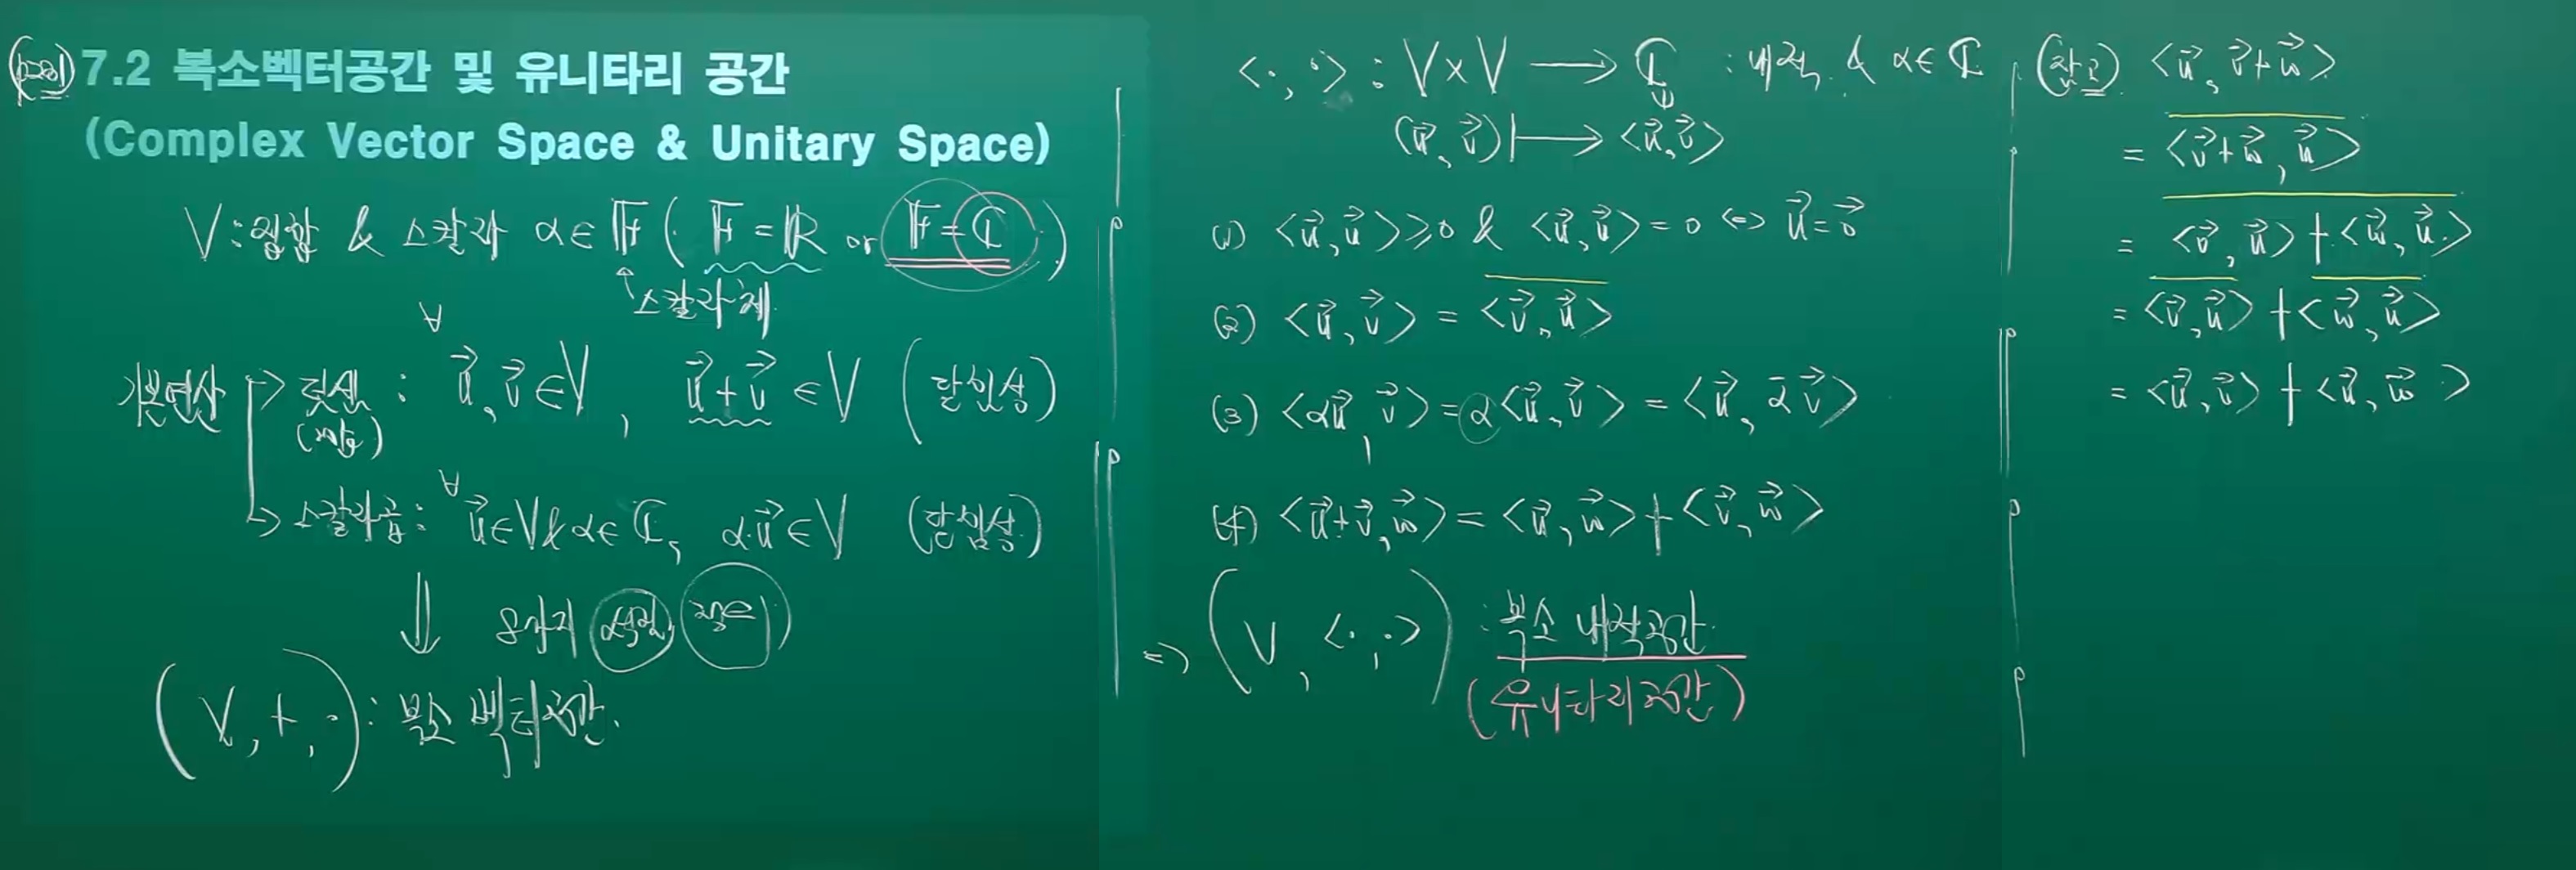 7.2 복소벡터공간 및 유니타리 공간
(Complex Vector Space & Unitary Space)
V : 집합 & 스칼라 α ∈ 𝔽 ( 𝔽 = ℝ or 𝔽 = ℂ )
↑ 스칼라체
기본연산 → 덧셈 : ∀ u⃗, v⃗ ∈ V , u⃗ + v⃗ ∈ V (닫힘성)
→ 스칼라곱 : ∀ u⃗ ∈ V & α ∈ ℂ, α·u⃗ ∈ V (닫힘성)
⇓ 8가지 성질
(V, +, ·) : 복소 벡터공간.
<·,·> : V × V → ℂ : 내적. & α ∈ ℂ
(u⃗, v⃗) ↦ <u⃗, v⃗>
(1) <u⃗, u⃗> ≥ 0 & <u⃗, u⃗> = 0 ⇔ u⃗ = 0⃗
(2) <u⃗, v⃗> = \overline{<v⃗, u⃗>}
(3) <αu⃗, v⃗> = α<u⃗, v⃗> = <u⃗, ᾱv⃗>
(4) <u⃗+v⃗, w⃗> = <u⃗, w⃗> + <v⃗, w⃗>
⇒ (V, <·,·>) : 복소 내적공간.
(유니타리공간)
(참고) <u⃗, v⃗+w⃗>
= \overline{<v⃗+w⃗, u⃗>}
= \overline{<v⃗, u⃗> + <w⃗, u⃗>}
= \overline{<v⃗, u⃗>} + \overline{<w⃗, u⃗>}
= <u⃗, v⃗> + <u⃗, w⃗>